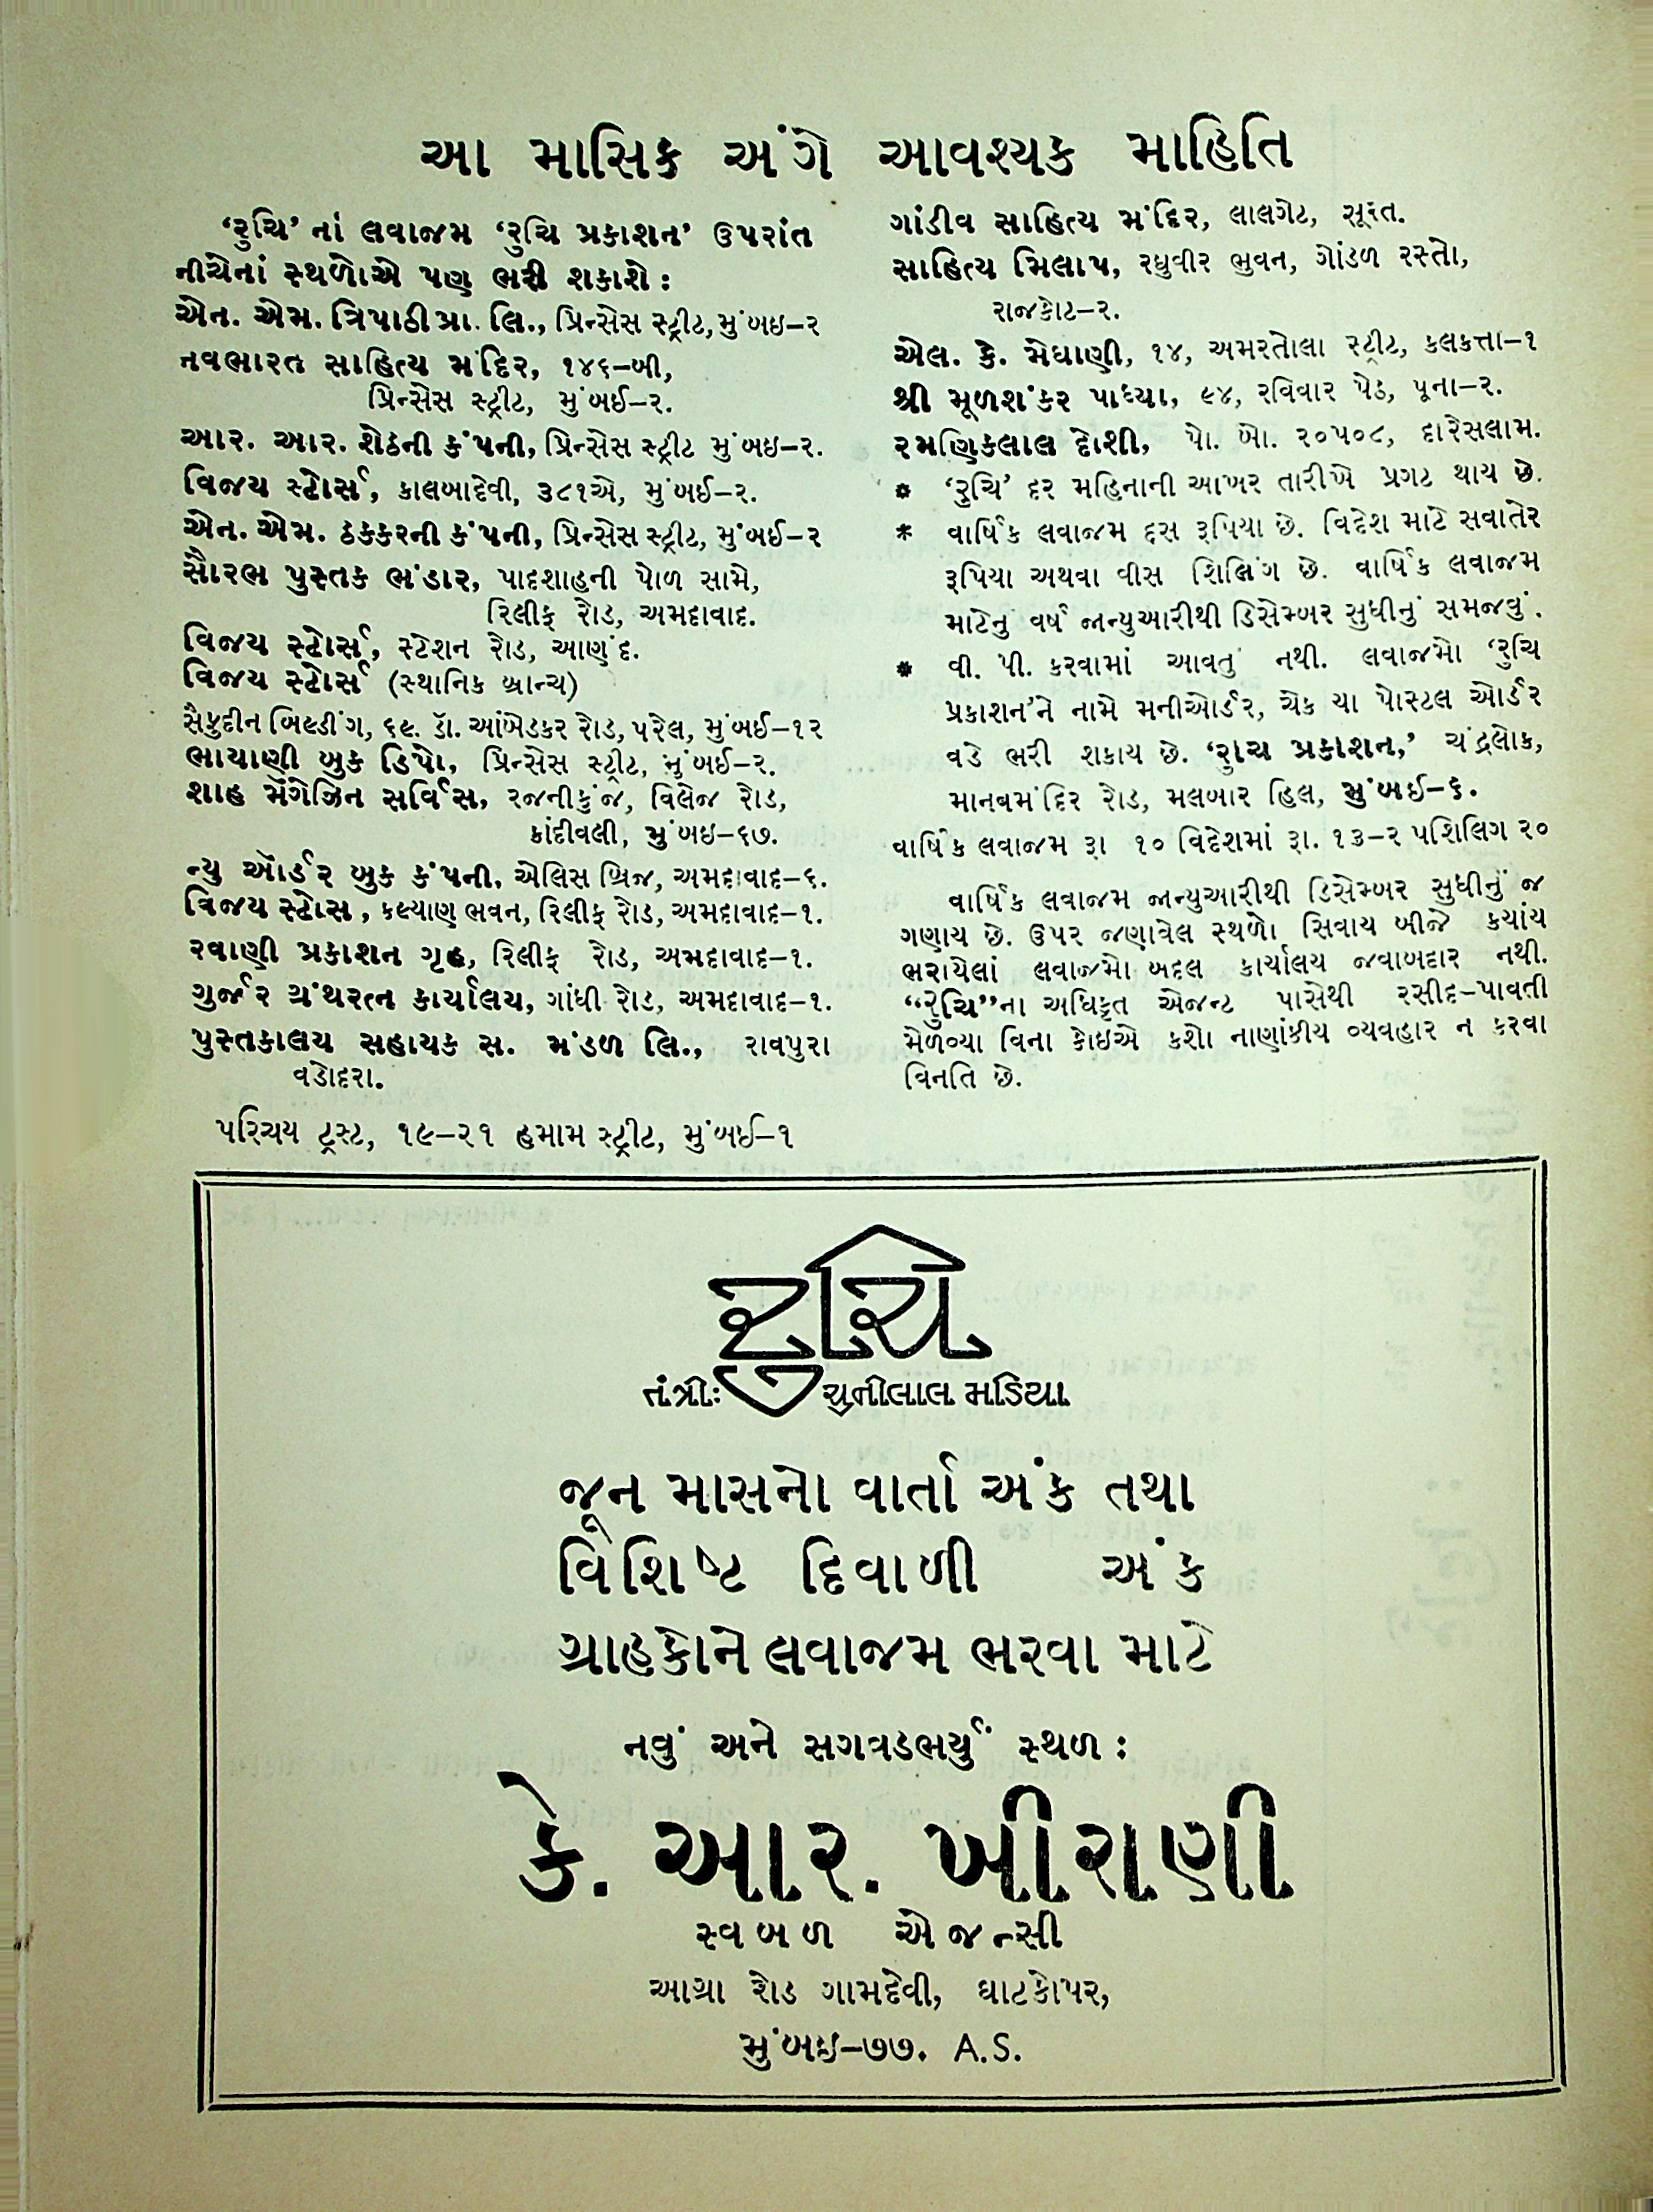 આ માસિક અંગે આવશ્યક માહિતિ
‘રુચિ’ નાં લવાજમ ‘રુચિ પ્રકાશન’ ઉપરાંત
નીચેનાં સ્થળોએ પણ ભરી શકાશે :
એન. એમ. ત્રિપાઠી પ્રા. લિ., પ્રિન્સેસ સ્ટ્રીટ, મુંબઇ–૨
નવભારત સાહિત્ય મંદિર, ૧૪૬–બી,
પ્રિન્સેસ સ્ટ્રીટ, મુંબઈ–૨.
આર. આર. શેઠની કંપની, પ્રિન્સેસ સ્ટ્રીટ મુંબઇ–૨.
વિજય સ્ટોર્સ, કાલબાદેવી, ૩૮૧એ, મુંબઈ–૨.
એન. એમ. ઠક્કરની કંપની, પ્રિન્સેસ સ્ટ્રીટ, મુંબઈ–૨
સૌરભ પુસ્તક ભંડાર, પાદશાહની પોળ સામે,
રિલીફ રોડ, અમદાવાદ.
વિજય સ્ટોર્સ, સ્ટેશન રોડ, આણંદ.
વિજય સ્ટોર્સ (સ્થાનિક બ્રાન્ચ)
સૈફુદીન બિલ્ડીંગ, ૬૯. ડૉ. આંબેડકર રોડ, પરેલ, મુંબઈ–૧૨
ભાયાણી બુક ડિપો, પ્રિન્સેસ સ્ટ્રીટ, મુંબઈ–૨.
શાહ મૅગેઝિન સર્વિસ, રજનીકુંજ, વિલેજ રોડ,
કાંદીવલી, મુંબઇ–૬૭.
ન્યુ ઑર્ડર બુક કંપની, એલિસ બ્રિજ, અમદાવાદ–૬.
વિજય સ્ટોસ, કલ્યાણ ભવન, રિલીફ રોડ, અમદાવાદ–૧.
રવાણી પ્રકાશન ગૃહ, રિલીફ રોડ, અમદાવાદ–૧.
ગુર્જર ગ્રંથરત્ન કાર્યાલય, ગાંધી રોડ, અમદાવાદ–૧.
પુસ્તકાલય સહાયક સ. મંડળ લિ., રાવપુરા
વડોદરા.
પરિચય ટ્રસ્ટ, ૧૯–૨૧ હમામ સ્ટ્રીટ, મુંબઈ–૧
ગાંડીવ સાહિત્ય મંદિર, લાલગેટ, સૂરત.
સાહિત્ય મિલાપ, રઘુવીર ભુવન, ગોંડળ રસ્તો,
રાજકોટ–૨.
એલ. કે. મેઘાણી, ૧૪, અમરતોલા સ્ટ્રીટ, કલકત્તા–૧
શ્રી મૂળશંકર પાધ્યા, ૯૪, રવિવાર પેઠ, પૂના–૨.
રમણિકલાલ દોશી, પો. બો. ૨૦૫૦૮, દારેસલામ.
* ‘રુચિ’ દર મહિનાની આખર તારીખે પ્રગટ થાય છે.
* વાર્ષિક લવાજમ દસ રૂપિયા છે. વિદેશ માટે સવાતેર
રૂપિયા અથવા વીસ શિલિંગ છે. વાર્ષિક લવાજમ
માટેનુ વર્ષ જાન્યુઆરીથી ડિસેમ્બર સુધીનું સમજવું.
* વી. પી. કરવામાં આવતુ નથી. લવાજમો ‘રુચિ
પ્રકાશન’ને નામે મનીઓર્ડર, ચેક યા પોસ્ટલ ઓર્ડર
વડે ભરી શકાય છે. ‘રુચિ પ્રકાશન,’ ચંદ્રલોક,
માનવમંદિર રોડ, મલબાર હિલ, મુંબઇ–૬.
વાર્ષિક લવાજમ રૂા ૧૦ વિદેશમાં રૂા. ૧૩–૨૫શિલિગ ૨૦
વાર્ષિક લવાજમ જાન્યુઆરીથી ડિસેમ્બર સુધીનું જ
ગણાય છે. ઉપર જણાવેલ સ્થળો સિવાય બીજે કયાંય
ભરાયેલાં લવાજમો બદલ કાર્યાલય જવાબદાર નથી.
“રુચિ”ના અધિકૃત એજન્ટ પાસેથી રસીદ–પાવતી
મેળવ્યા વિના કોઇએ કશો નાણાંકીય વ્યવહાર ન કરવા
વિનતિ છે.
રુચિ
તંત્રી: ચુનીલાલ મડિયા
જૂન માસનો વાર્તા અંક તથા
વિશિષ્ટ દિવાળી અંક
ગ્રાહકોને લવાજમ ભરવા માટે
નવું અને સગવડભર્યું સ્થળ :
કે. આર. ખીરાણી
સ્વબળ એજન્સી
આગ્રા રોડ ગામદેવી, ઘાટકોપર,
મુંબઇ–૭૭. A.S.